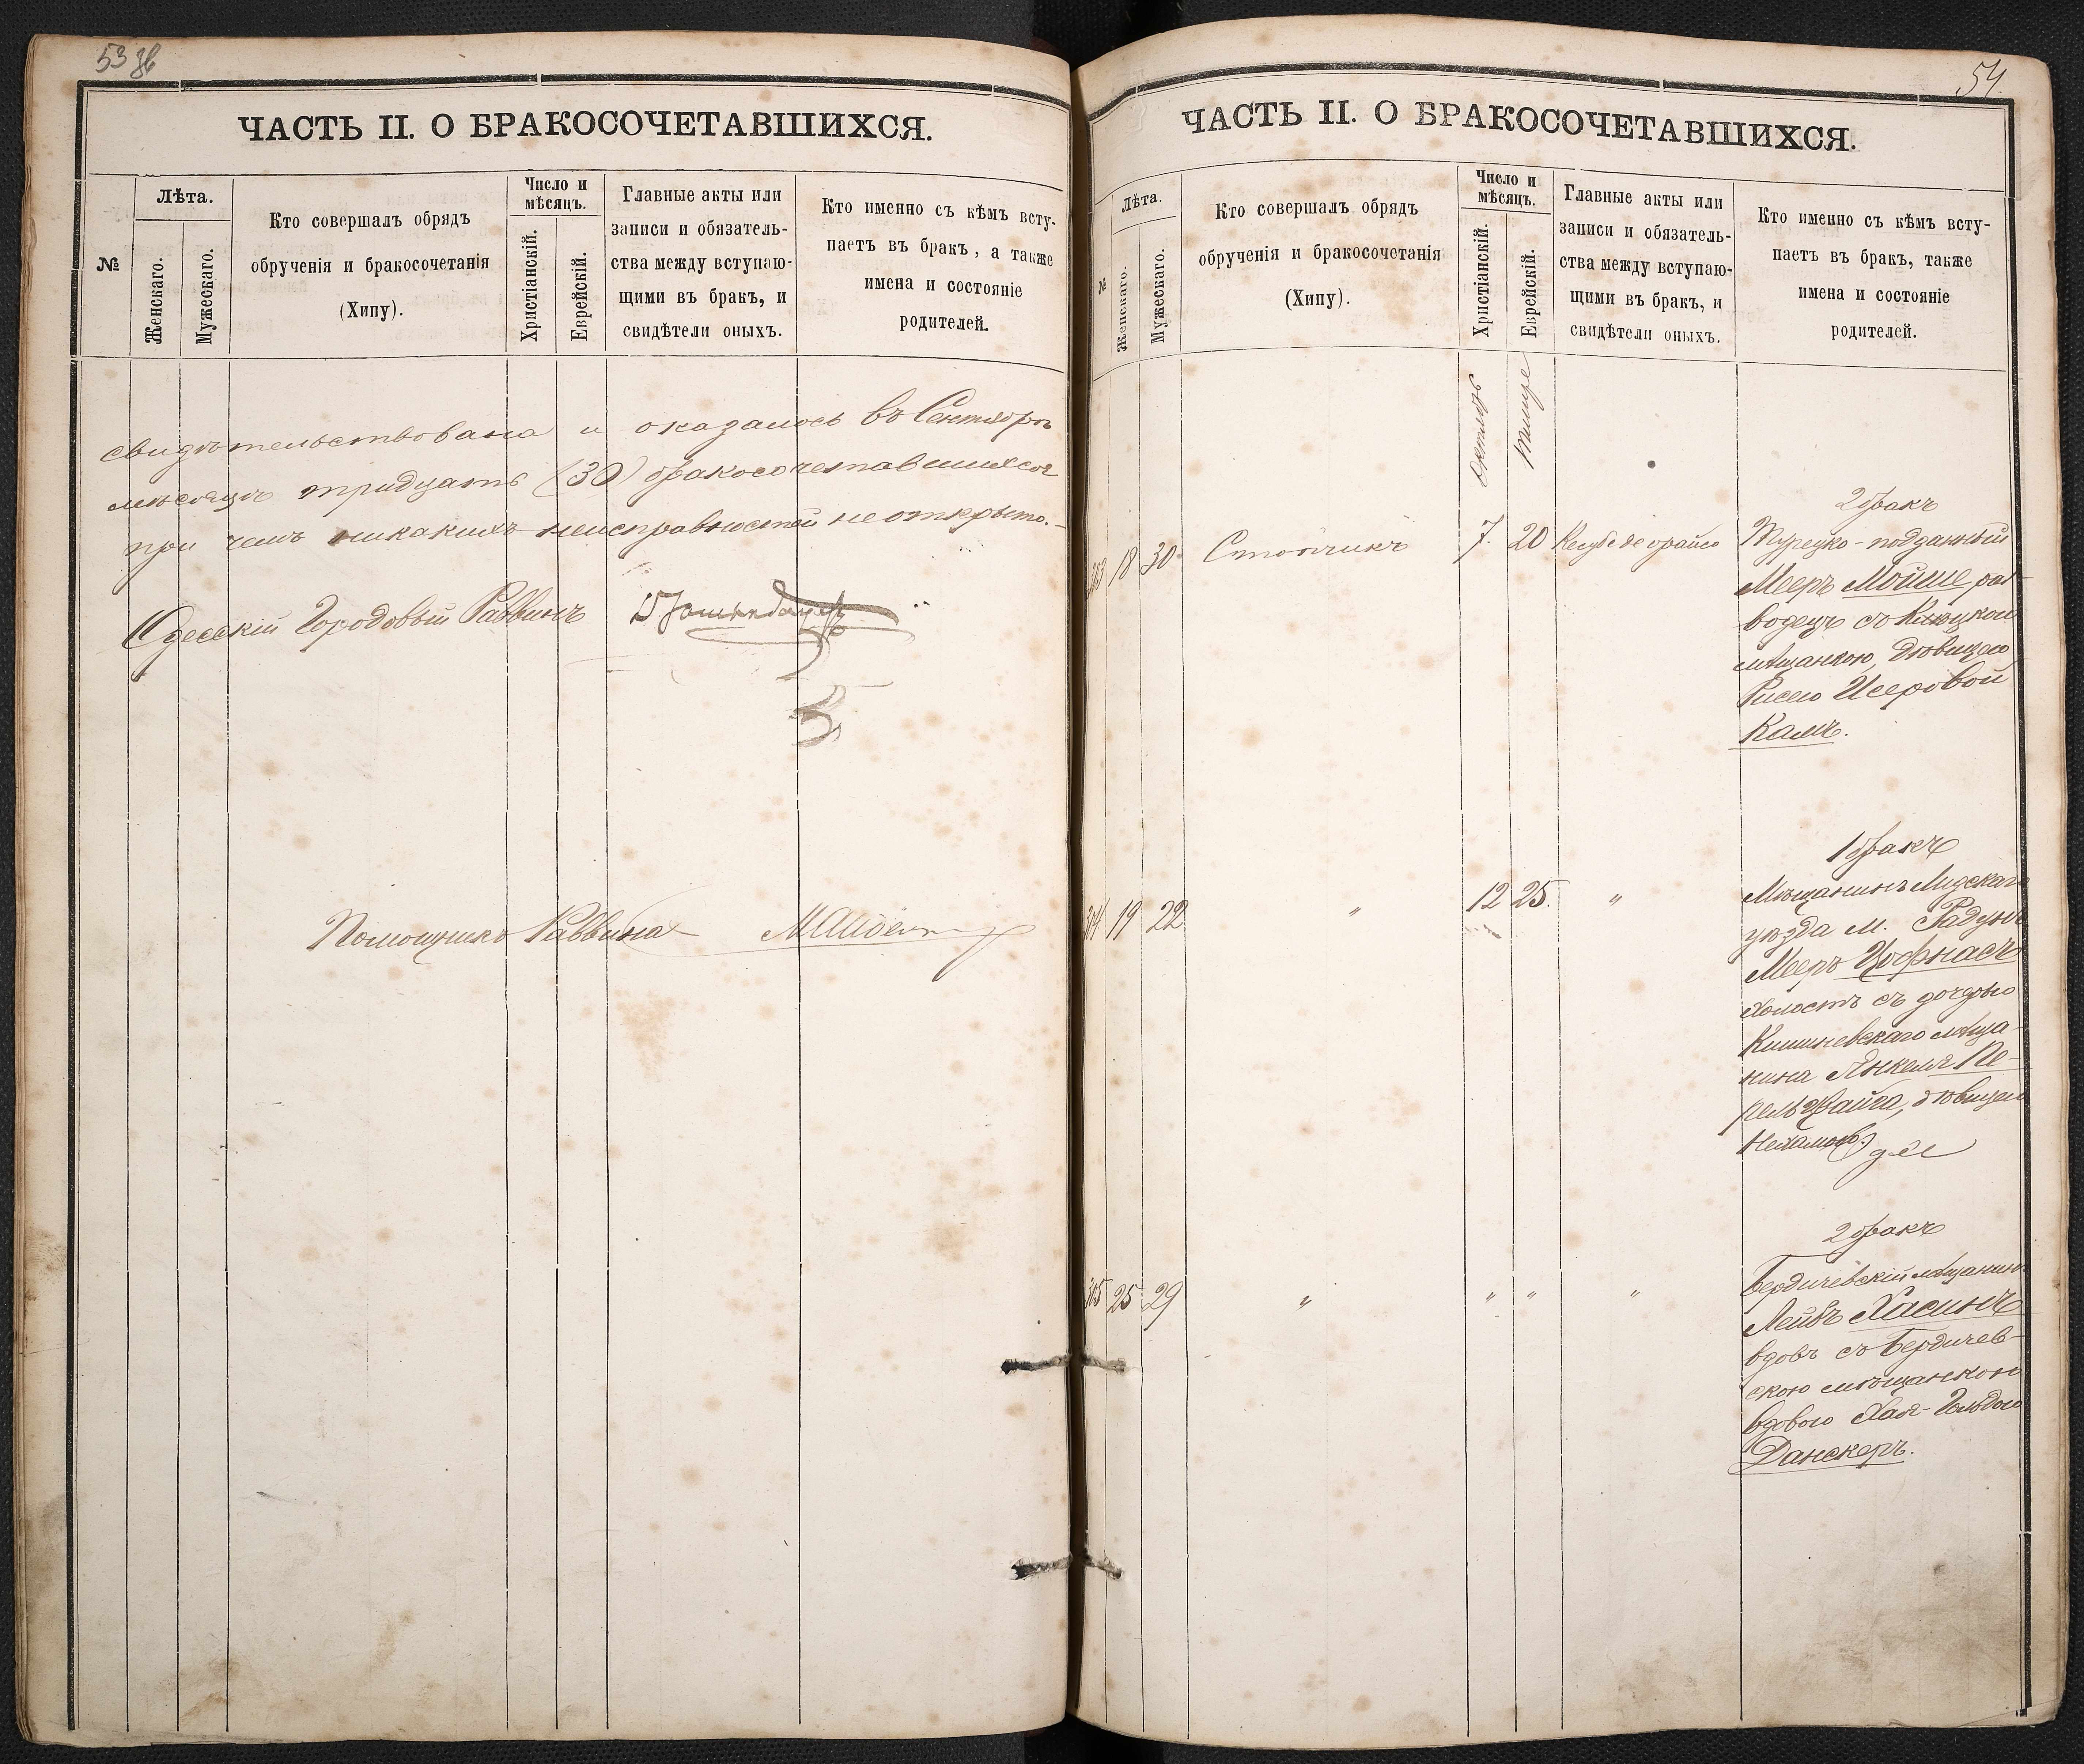 53 об
ЧАСТЬ II. О БРАКОСОЧЕТАВШИХСЯ.
№
Лѣта.
Женскаго.
Мужескаго.
Кто совершалъ обрядъ
обрученія и бракосочетанія
(Хипу).
Число и
мѣсяцъ.
Христіанскій.
Еврейскій.
Главные акты или
записи и обязатель-
ства между вступаю-
щими въ бракъ, и
свидѣтели оныхъ.
Кто именно съ кѣмъ всту-
паетъ въ бракъ, а также
имена и состояніе
родителей.
свидѣтельствована и оказалось въ Сентябрѣ
мѣсяцѣ тридцать (30) бракосочетавшихся
при чемъ никакихъ неисправностей не открыто.
Одесскій Городовый Раввинъ
Помощникъ Раввина
54.
ЧАСТЬ II. О БРАКОСОЧЕТАВШИХСЯ.
№
Лѣта.
Женскаго.
Мужескаго.
Кто совершалъ обрядъ
обрученія и бракосочетанія
(Хипу).
Число и
мѣсяцъ.
Христіанскій.
Еврейскій.
Главные акты или
записи и обязатель-
ства между вступаю-
щими въ бракъ, и
свидѣтели оныхъ.
Кто именно съ кѣмъ всту-
паетъ въ бракъ, также
имена и состояніе
родителей.
Октябрь
Тишре
303 18 30 7. 20
2 бракъ
Турецко-подданный
Мееръ Мойше раз-
водецъ съ
мѣщанкою, дѣвицею
Рисею Исеровой
Камъ.
304 19 22 " 12 25. "
1 бракъ
Мѣщанинъ Лидскаго
уѣзда м. Радунъ
Мееръ Цофнасъ
холостъ съ дочерью
Кишиневскаго мѣща-
нина Янкеля Пе-
рельцвайга, дѣвицею
305 25 29 " " " "
2 бракъ
Бердичевскій мѣщанинъ
Лейбъ Хасинъ
вдовъ съ Бердичев-
скою мѣщанкою
вдовою Хая-Гольдою
Данскеръ.